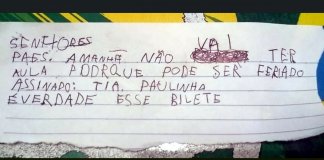 SENHORES
PAES. AMANHÃ NÃO VAI TER
AULA PORRQUE PODE SER FERIADO
ASSINADO: TIA. PAULINHA
E VERDADE ESSE BILETE